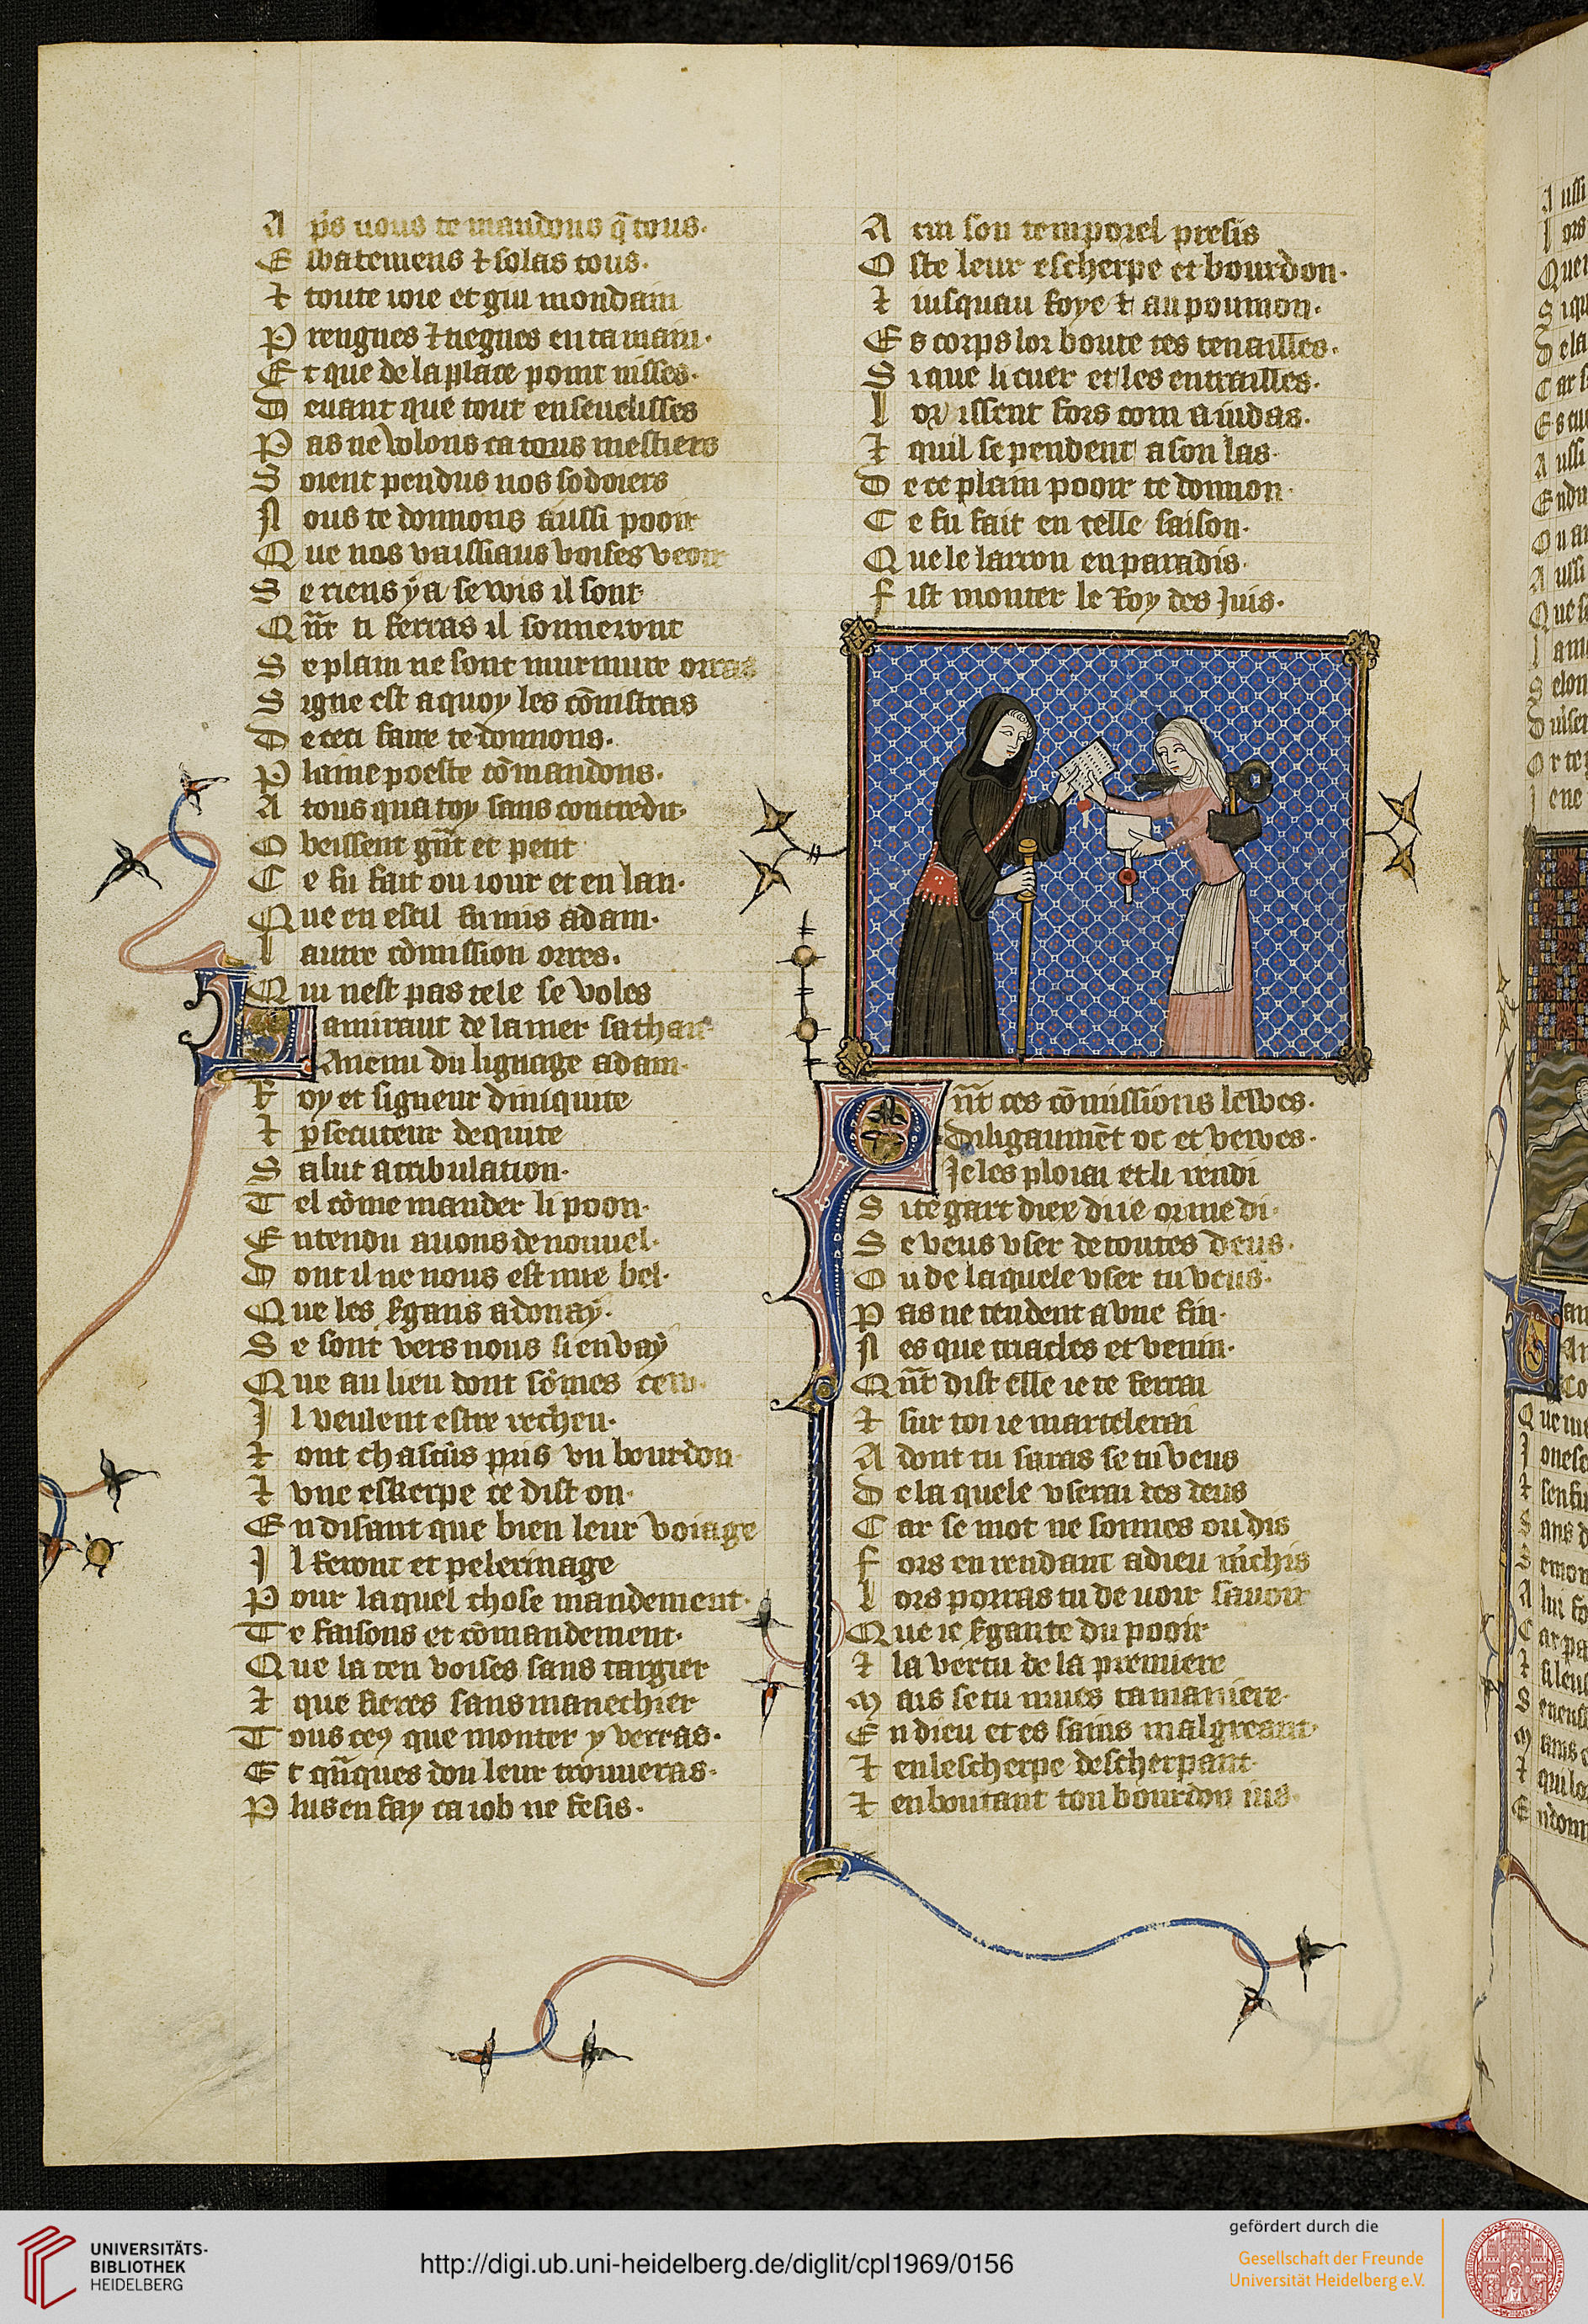 A p͛s nous te mandons q̄ tous.
E sbatemens ⁊ solas tous.
⁊ toute ioie et giu mondain
P rengnes ⁊ tiegnes en ta main.
E t que de la place point nisses.
D euant que tout enseuelisses
P as ne volons ca tous mestiers
S oient pendus nos sodoiers
N ous te donnons aussi pooir
Q ue nos vaissiaus voises veoir
S e riens y a se wis il sont
Q n̄t ti ferras il sonneront
S e plain ne sont murmure orras
S igne est a quoy les cōnistras
D e ceci faire te donnons.
P laine poeste cōmandons.
A tous qua toy sans contredit.
O beissent gn̄t et petit
C e fu fait ou iour et en lan.
Q ue en escil fu mis adam.
L autre cōmission orres.
Q ui nest pas tele se voles
L amiraut de la mer sathan
Anemi du lignage adam.
R oy et signeur diniquite
⁊ p̱secuteur dequite
S alut a tribulation.
T el cōme mander li poon.
E ntendu auons de nouuel.
D ont il ne nous est mie bel.
Q ue les sergans adonay.
S e sont vers nous si envay
Q ue au lieu dont sōmes ceu.
I l veulent estre recheu.
⁊ ont chascūs pris vn bourdon
⁊ vne eskerpe ce dist on.
E n disant que bien leur voiage
I l feront et pelerinage
P our laquel chose mandement.
T e faisons et cōmandement.
Q ue la ten voises sans targier
⁊ que fieres sans manechier
T ous ceꝰ que monter y verras.
E t qn̄ques don leur trouueras.
P lus en fay ca iob ne fesis.
A cui son temporel presis
O ste leur escherpe et bourdon.
⁊ iusquau foye ⁊ au poumon.
E s corps lor boute tes tenailles.
S i que li cuer et les entrailles.
L or issent fors com a iudas.
⁊ quil se pendent a son las.
D e ce plain pooir te donnon.
C e fu fait en telle saison.
Q ue le larron en paradis.
F ist monter le Roy des Juis.
Q n̄t ces cōmissions lewes.
Diligaumēt oc et vewes.
Je les ploiai et li rendi
S i te gart diex di ie or me di.
S e veus vser de toutes deus.
O u de laquele vser tu veus.
P as ne tendent a vne fin.
N es que triacles et venin.
Q n̄t dist elle ie te ferrai
⁊ sur toi ie martelerai
A dont tu saras se tu veus
D e la quele vserai des deus
C ar se mot ne sonnes ou dis
F ors en rendant a dieu m̄chis
L ors porras tu de voir sauoir
Q ue ie sergante du pooir
⁊ la vertu de la premiere
M ais se tu mues ta maniere.
E n dieu et es sains malgreant.
⁊ en lescherpe descherpant.
⁊ en boutant ton bourdon ius.
UNIVERSITÄTS-
BIBLIOTHEK
HEIDELBERG
http://digi.ub.uni-heidelberg.de/diglit/cpl1969/0156
gefördert durch die
Gesellschaft der Freunde
Universität Heidelberg e.V.